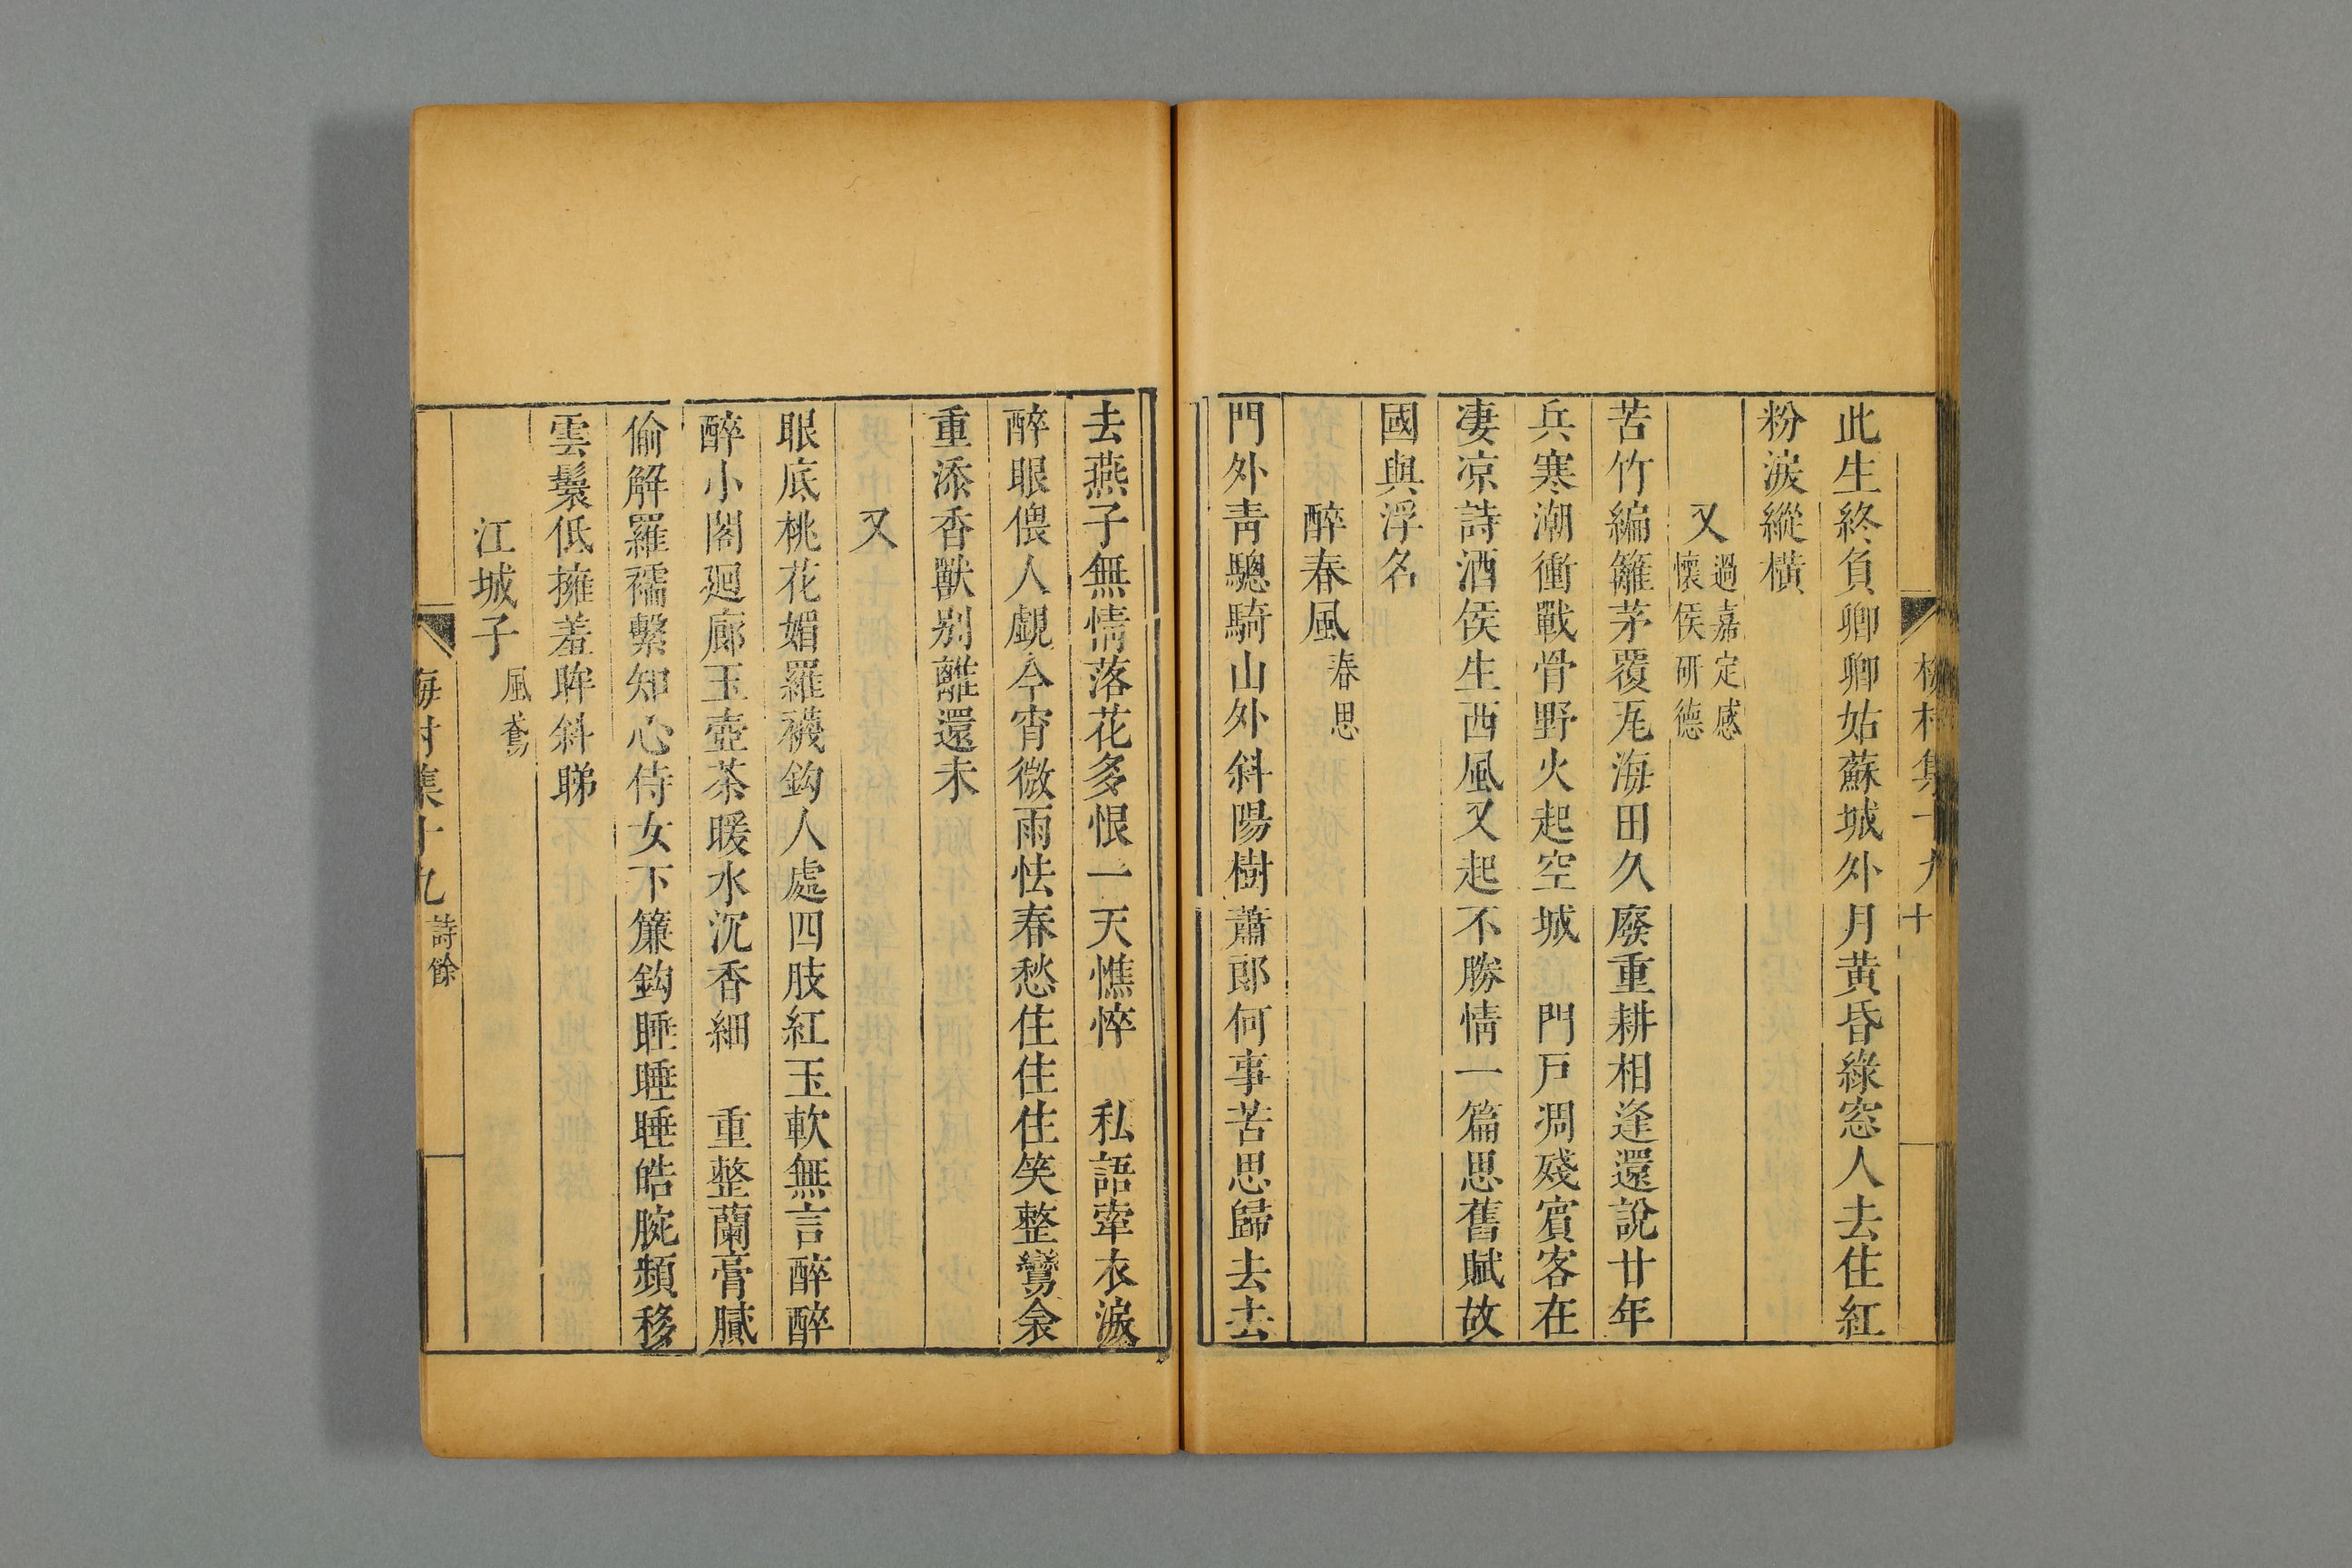 梅村集十九 十
此生終負卿卿姑蘇城外月黄昏綠窓人去住紅
粉淚縱橫
又過嘉定感懷侯研德
苦竹編籬茅覆瓦海田久廢重耕相逢還說廿年
兵寒潮衝戰骨野火起空城 門戸凋殘賔客在
凄凉詩酒侯生西風又起不勝情一篇思舊賦故
國與浮名
醉春風春思
門外靑驄騎山外斜陽樹蕭郞何事苦思歸去去
去燕子無情落花多恨一天憔悴 私語牽衣淚
醉眼偎人覷今宵微雨怯春愁住住住笑整鸞衾
重添香獸别離還未
又
眼底桃花媚羅襪鈎人處四肢紅玉軟無言醉醉
醉小閣廻廊玉壺茶暖水沉香細 重整蘭膏膩
偷解羅襦繫知心侍女下簾鈎睡睡睡皓腕頻移
雲鬟低擁羞眸斜睇
江城子風鳶
梅村集十九 詩餘